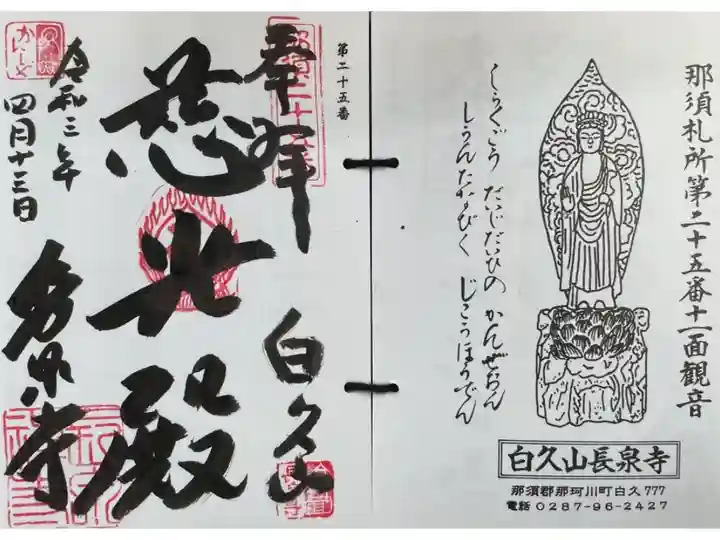 那須札所第二十五番十一面観音
しらくごう だいじだいひの かんぜおん
しうんたなびく じこうほうでん
白久山長泉寺
那須郡那珂川町白久777
電話0287-96-2427
第二十五番
奉拝
白久山
慈光殿
長泉寺
令和三年
四月十三日